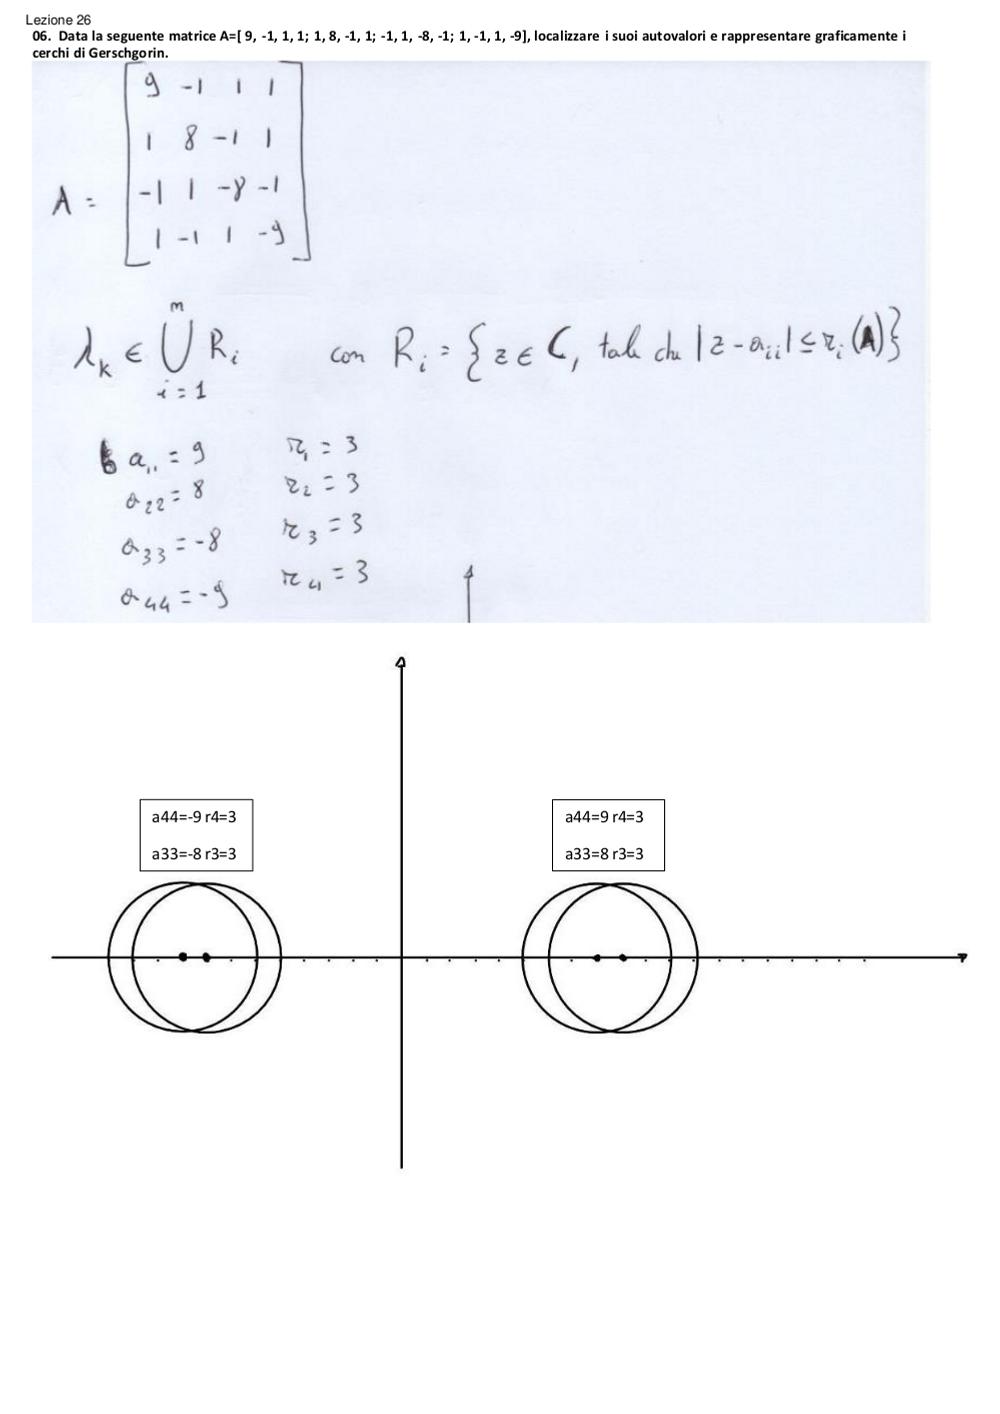 Lezione 26
06. Data la seguente matrice A=[ 9, -1, 1, 1; 1, 8, -1, 1; -1, 1, -8, -1; 1, -1, 1, -9], localizzare i suoi autovalori e rappresentare graficamente i
cerchi di Gerschgorin.
9 -1 1 1
1 8 -1 1
A = -1 1 -8 -1
1 -1 1 -9
λk ∈ ⋃ i=1 m Ri con Ri = {z ∈ C, tale che |z - aii| ≤ ri(A)}
a11 = 9 r1 = 3
a22 = 8 r2 = 3
a33 = -8 r3 = 3
a44 = -9 r4 = 3
a44=-9 r4=3
a33=-8 r3=3
a44=9 r4=3
a33=8 r3=3